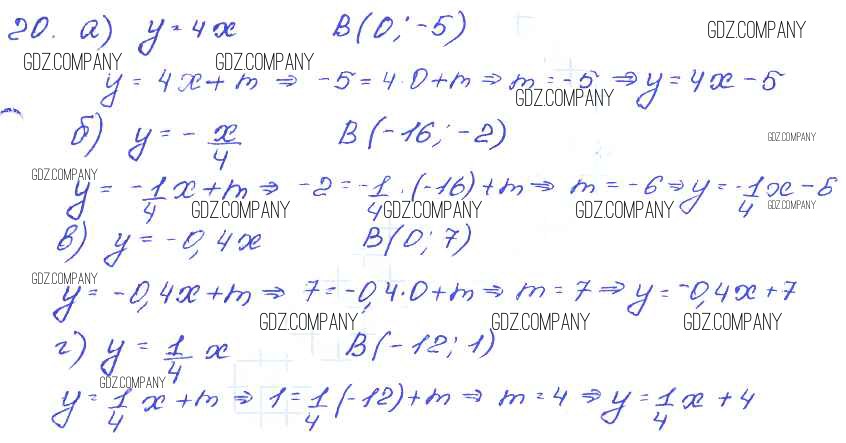 20. а) y = 4x B(0; -5)
GDZ.COMPANY
GDZ.COMPANY GDZ.COMPANY
y = 4x + m ⇒ -5 = 4·0 + m ⇒ m = -5 ⇒ y = 4x - 5
GDZ.COMPANY
б) y = - x/4 B(-16; -2)
GDZ.COMPANY
GDZ.COMPANY
y = -1/4 x + m ⇒ -2 = -1/4 · (-16) + m ⇒ m = -6 ⇒ y = -1/4 x - 6
GDZ.COMPANY GDZ.COMPANY GDZ.COMPANY GDZ.COMPANY
в) y = -0,4x B(0; 7)
GDZ.COMPANY
y = -0,4x + m ⇒ 7 = -0,4·0 + m ⇒ m = 7 ⇒ y = -0,4x + 7
GDZ.COMPANY GDZ.COMPANY GDZ.COMPANY
г) y = 1/4 x B(-12; 1)
GDZ.COMPANY
y = 1/4 x + m ⇒ 1 = 1/4 (-12) + m ⇒ m = 4 ⇒ y = 1/4 x + 4